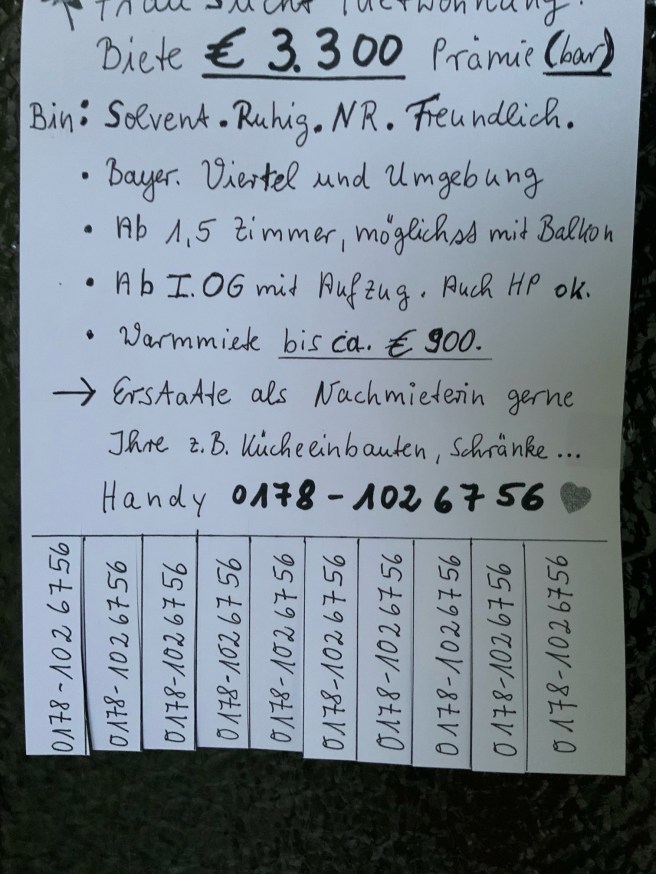 Frau sucht Mietwohnung.
Biete € 3.300 Prämie (bar)
Bin: Solvent. Ruhig. NR. Freundlich.
• Bayer. Viertel und Umgebung
• Ab 1,5 Zimmer, möglichst mit Balkon
• Ab I. OG mit Aufzug. Auch HP ok.
• Warmmiete bis ca. € 900.
→ Erstatte als Nachmieterin gerne
Ihre z.B. Kücheeinbauten, Schränke...
Handy 0178-1026756
0178-1026756
0178-1026756
0178-1026756
0178-1026756
0178-1026756
0178-1026756
0178-1026756
0178-1026756
0178-1026756
0178-1026756